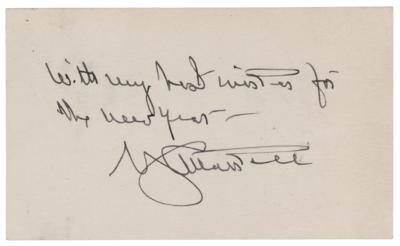 With my best wishes for
the new year —